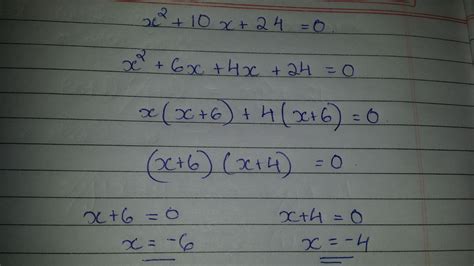 x² + 10x + 24 = 0
x² + 6x + 4x + 24 = 0
x(x+6) + 4(x+6) = 0
(x+6)(x+4) = 0
x+6 = 0 x+4 = 0
x = -6 x = -4